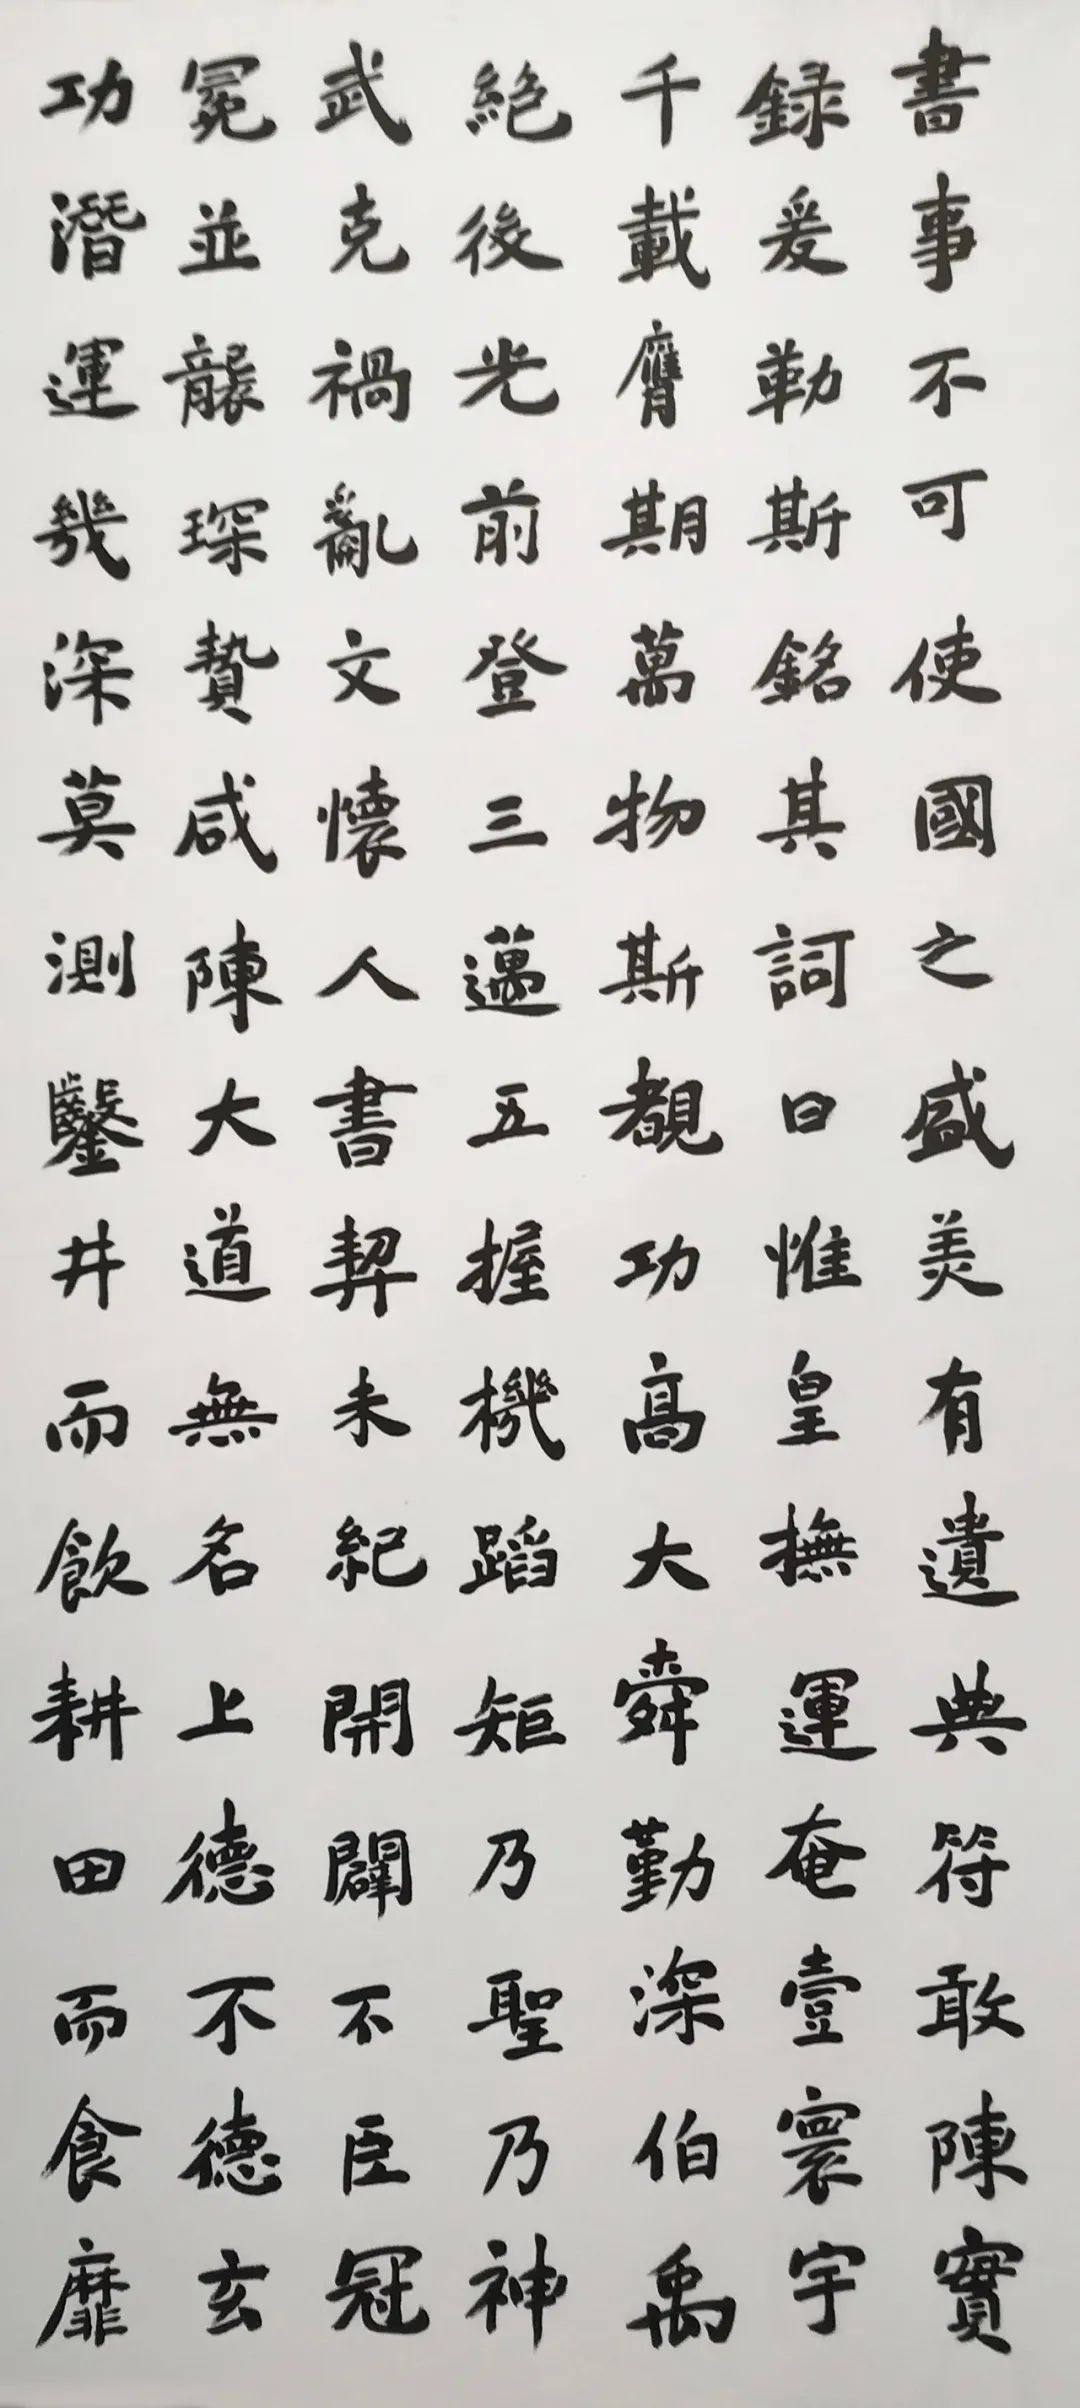 書事不可使國之盛美有遺典符敢陳實
録爰勒斯銘其詞曰惟皇撫運奄壹寰宇
千載膺期萬物斯覩功高大舜勤深伯禹
絕後光前登三邁五握機蹈矩乃聖乃神
武克禍亂文懷人書契未紀開闢不臣冠
冕並襲琛贄咸陳大道無名上德不德玄
功潛運幾深莫測鑿井而飲耕田而食靡